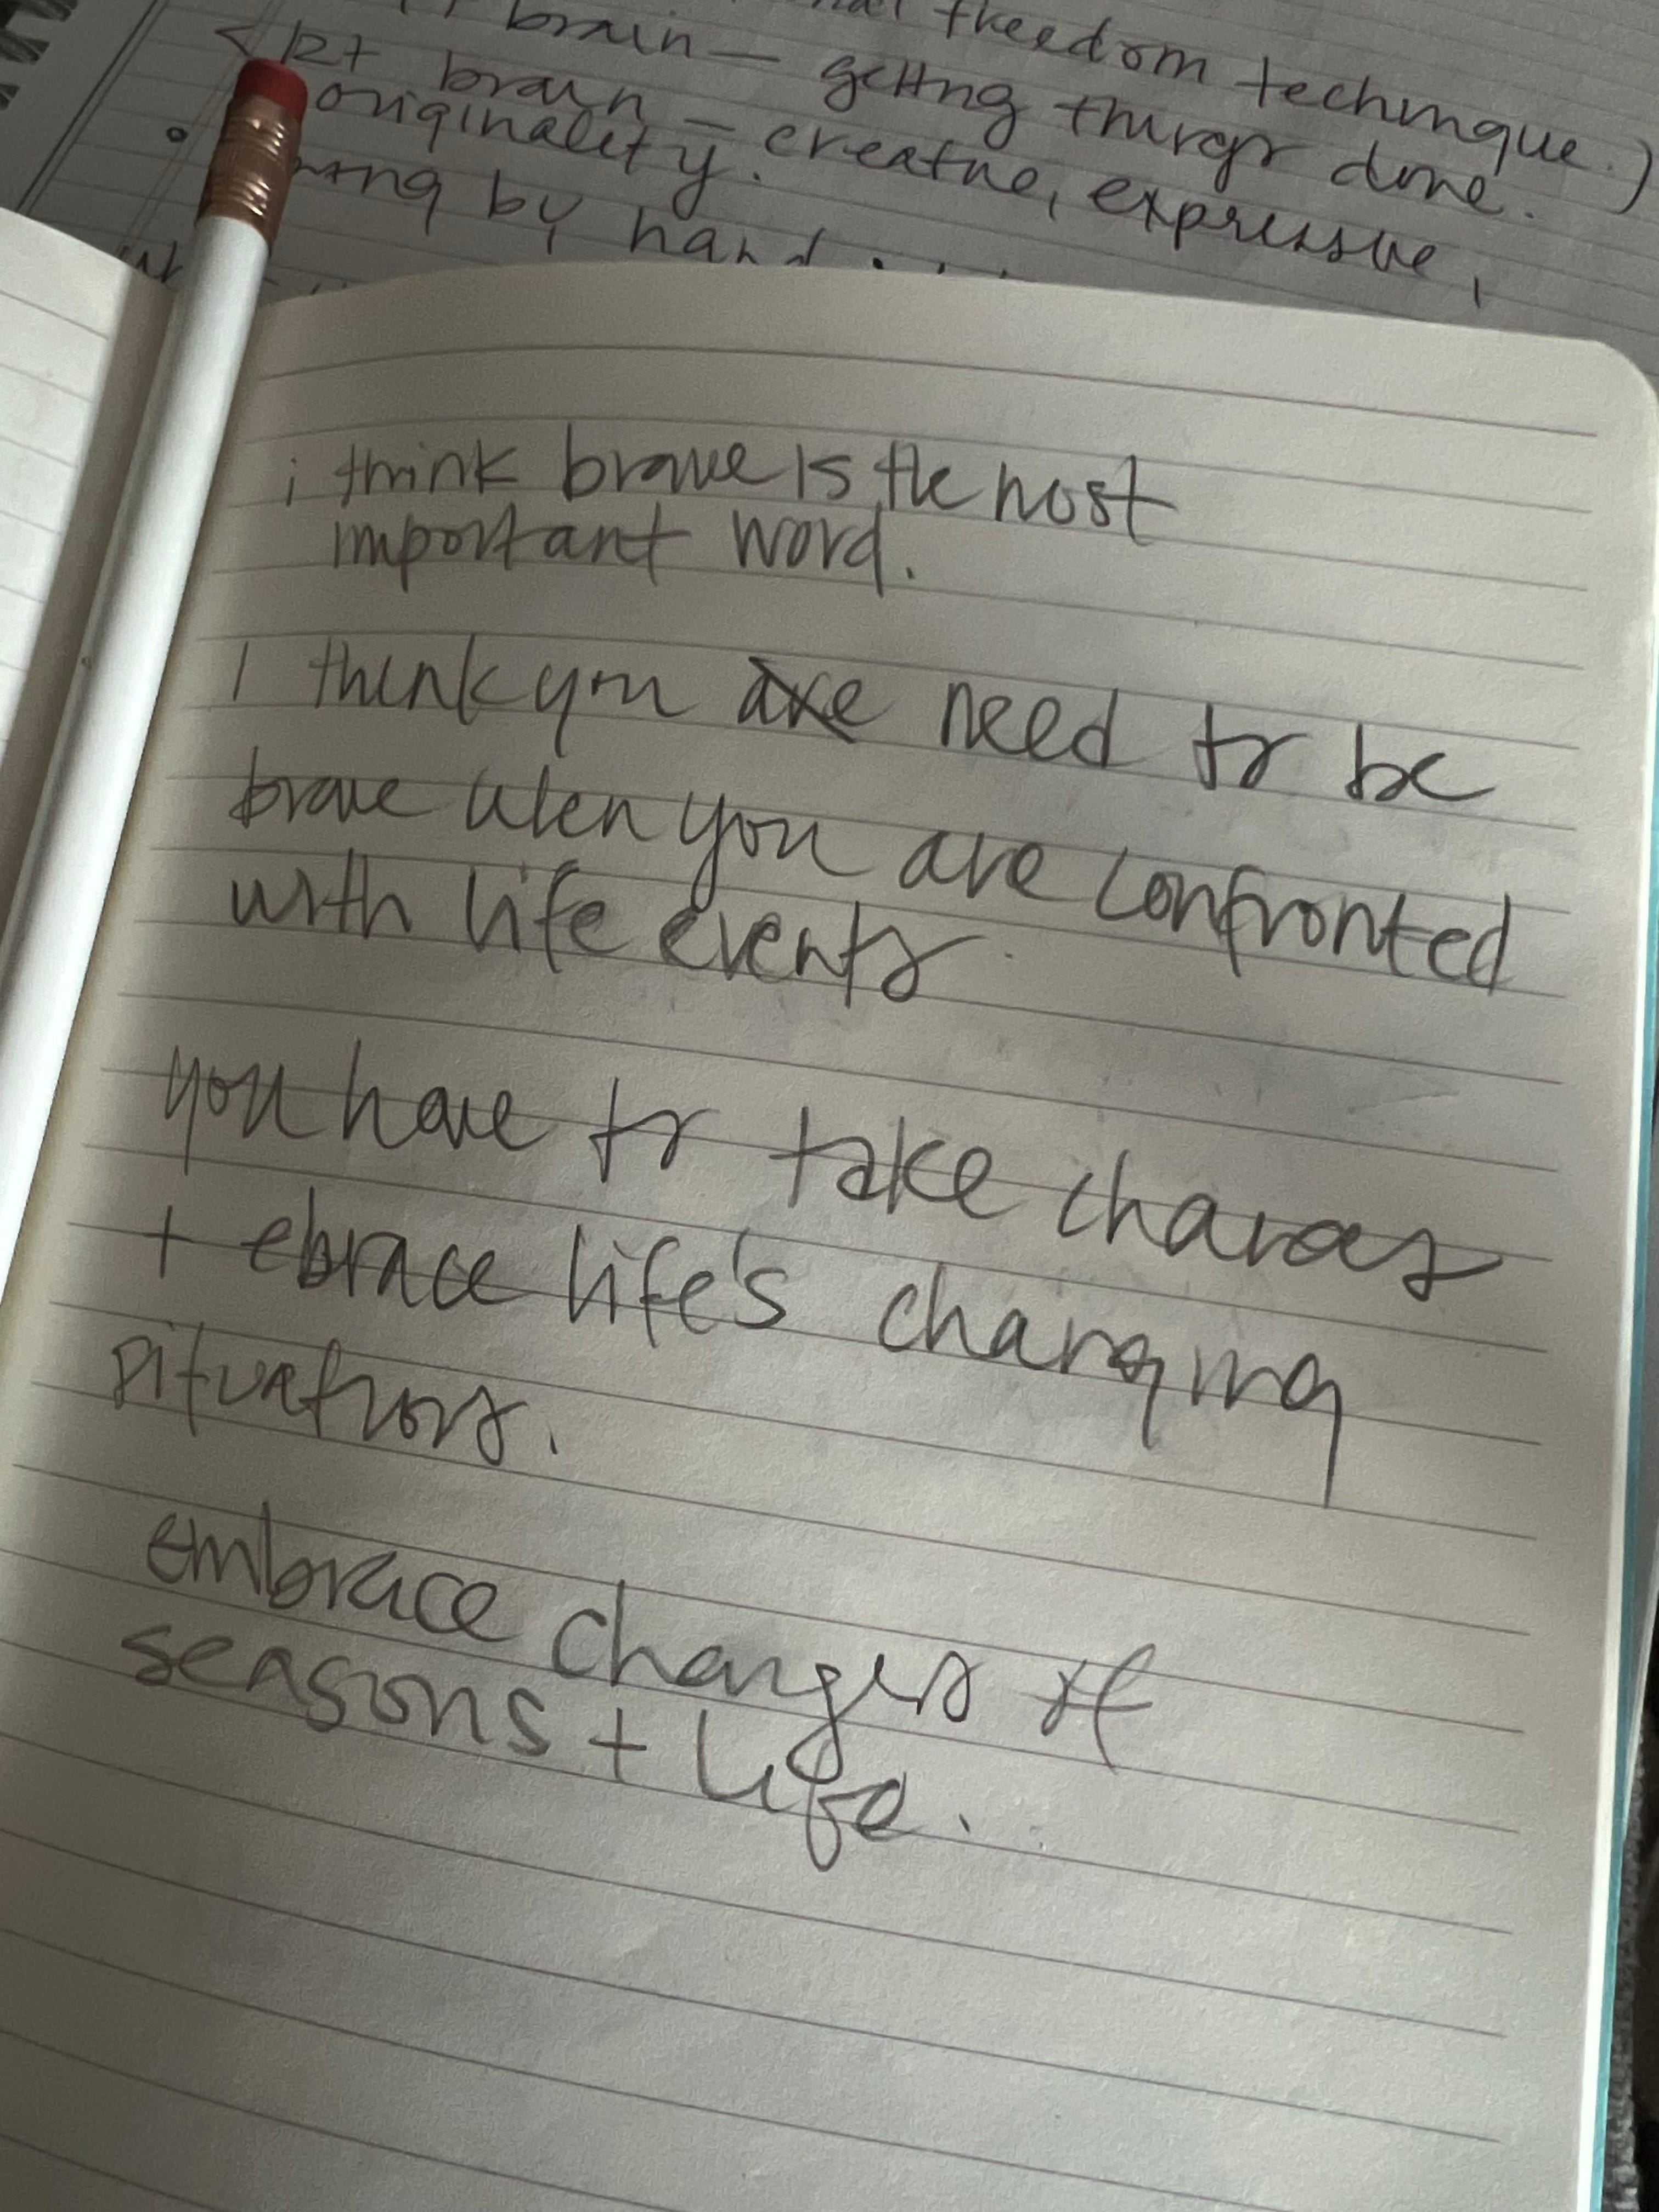 freedom technique.)
brain — getting things done.
Rt brain — creative, expressive,
originality.
by hand
i think brave is the most
important word.
I think you are need to be
brave when you are confronted
with life events.
you have to take
+ ebrace life's changing
situations.
embrace changes of
seasons + life.